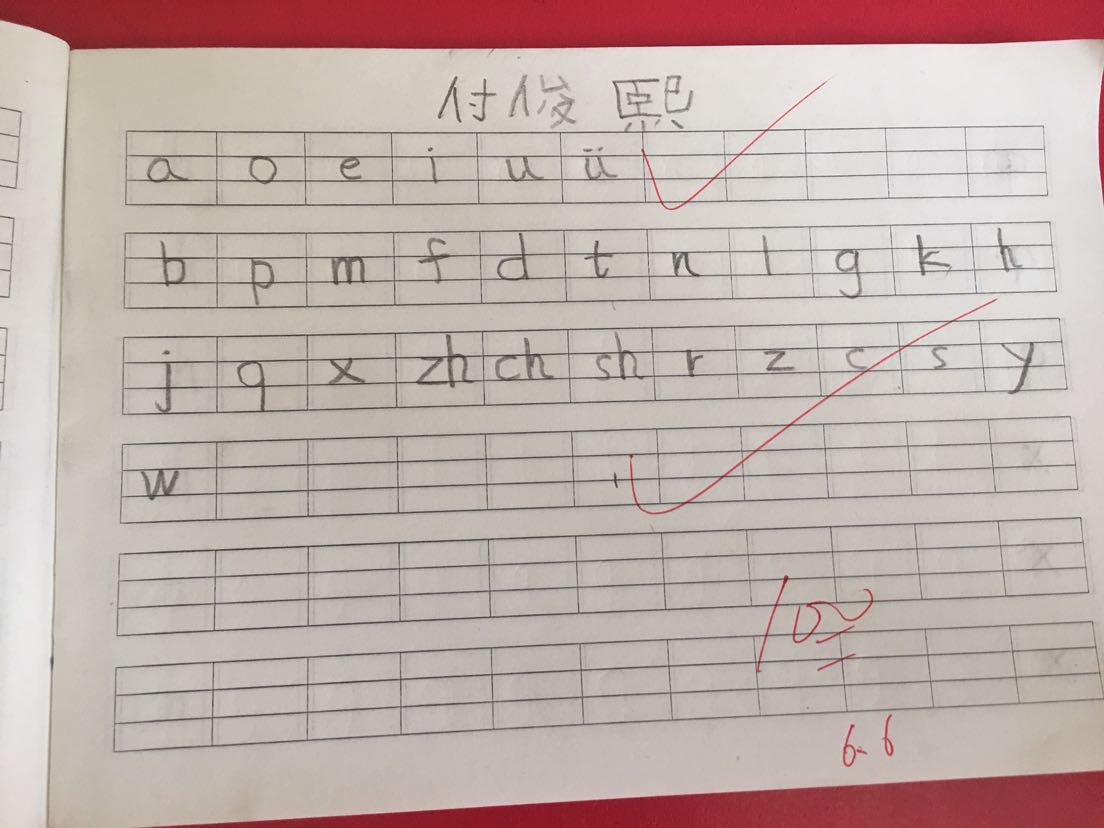 付俊熙
a o e i u ü
b p m f d t n l g k h
j q x zh ch sh r z c s y
w
100
6.6